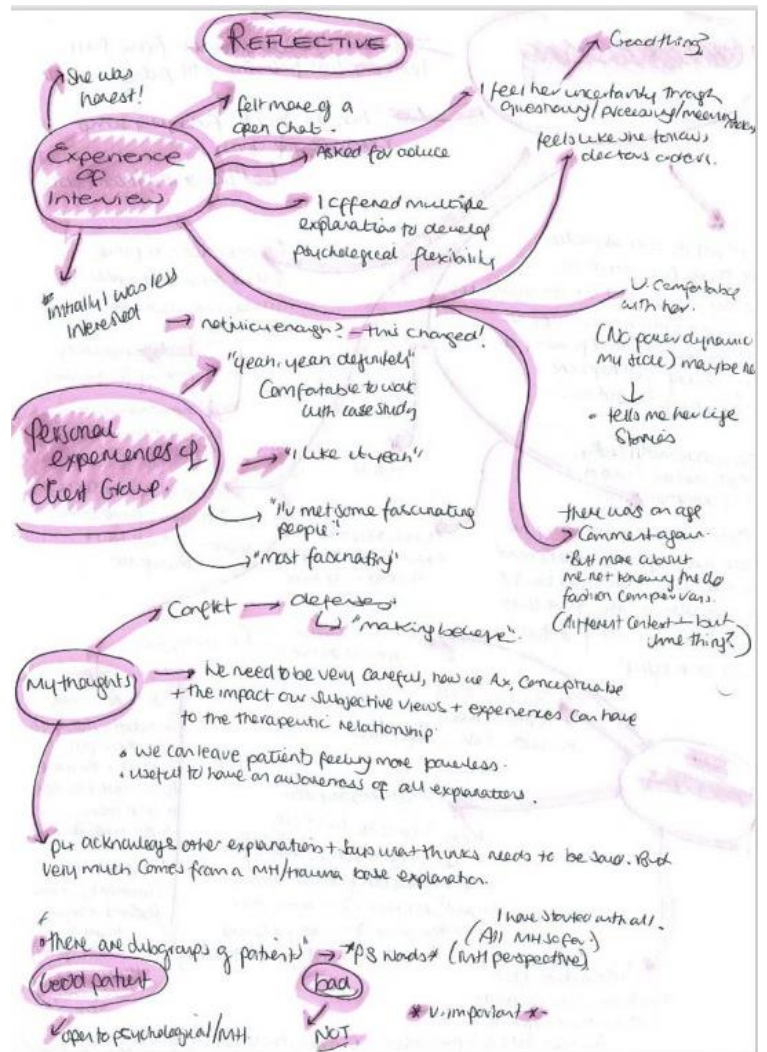 REFLECTIVE
She was
honest!
felt more of a
open chat.
Asked for advice
Experience
of
Interview
I offered multiple
explanations to develop
psychological flexibility
Good thing?
I feel her uncertainty through
questioning/processing/meaning
feels like she follows
doctors orders.
V. Comfortable
with her.
(No power dynamic
my side) maybe
tells me her life
Stories
there was an age
Comment again.
But more about
me not knowing the
fashion
(different context - but
same thing?)
Initially I was less
interested
not juicy enough? - this changed!
Personal
experiences of
Client Group.
"yeah, yeah definitely"
Comfortable to work
with case study
"I like it yeah"
"I've met some fascinating
people"
"most fascinating"
My thoughts
Conflict
defenses
"making believe".
We need to be very careful, how we Ax, conceptualise
+ the impact our subjective views + experiences can have
to the therapeutic relationship.
• we can leave patients feeling more powerless.
• useful to have an awareness of all explanations.
acknowledges other explanations + says what thinks needs to be said. But
very much comes from a MH/trauma base explanation.
"there are subgroups of patients"
*PS words* (MH perspective)
I have started with all.
(All MH so far.)
Good patient
bad
open to psychological/MH.
NOT
* V. important *